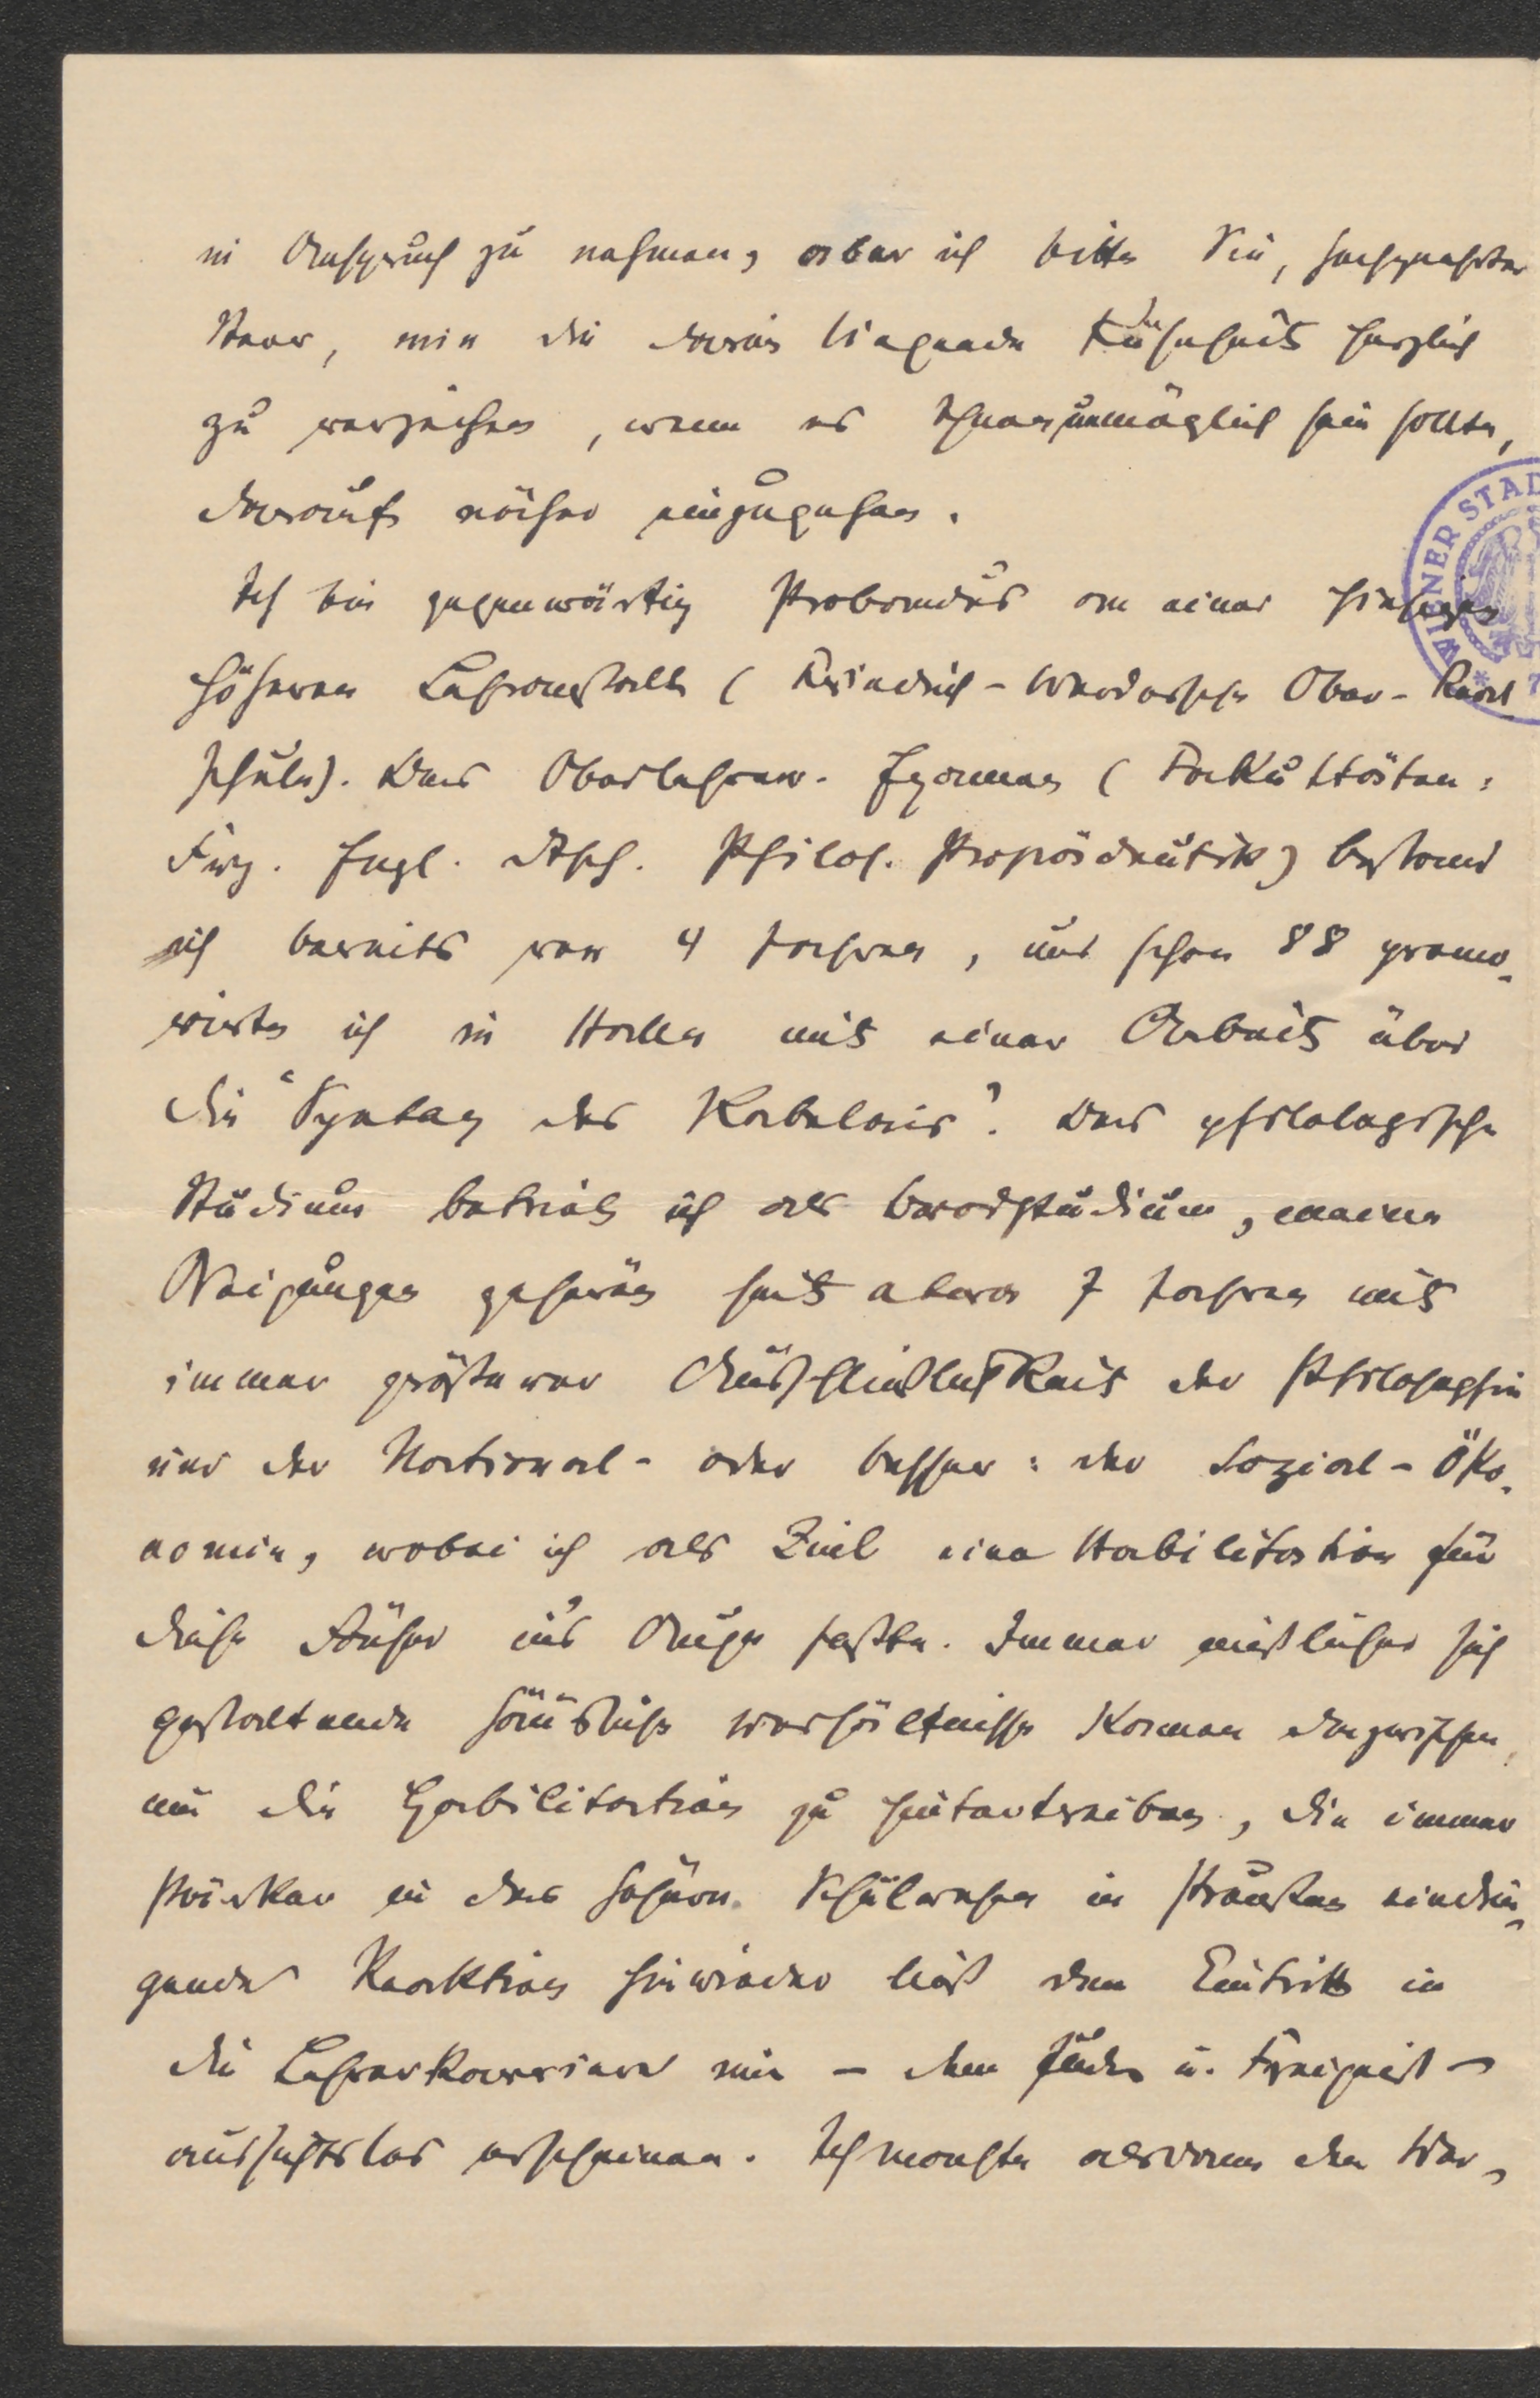 in Anspruch zu nehmen, aber ich bitte Sie, hochgeehrter
Herr, mir die darin liegende Kühnheit herzlich
zu verzeihen, wenn es Ihnen unmöglich sein sollte,
darauf näher einzugehen.
Ich bin gegenwärtig Probandus an einer hiesigen
höheren Lehranstalt (Friedrich-Werdersche Ober-Real
schule). Das Oberlehrer-Examen (Fakultäten:
Frz. Engl. Dtsch. Philos. Propädeutik) bestand
ich bereits vor 4 Jahren, und schon 88 promo-
vierte ich in Halle mit einer Arbeit über
die "Syntax des Rabelais". Das philologische
Studium betrieb ich als Brodstudium, meine
Neigungen gehören seit etwa 7 Jahren mit
immer größerer Ausschließlichkeit der Philosophie
und der National- oder besser: der Sozial-Öko-
nomie, wobei ich als Ziel eine Habilitation für
diese Fächer ins Auge faßte. Immer mißlicher sich
gestaltende häusliche Verhältnisse kamen dazwischen,
um die Habilitation zu hintertreiben, die immer
stärker in das höhere Schulwesen in Preußen eindrin-
gende Reaktion hinwieder ließ den Eintritt in
die Lehrerkarriere mir – dem Juden u. Freigeist –
aussichtslos erscheinen. Ich machte alsdann den Ver-
WIENER STAD